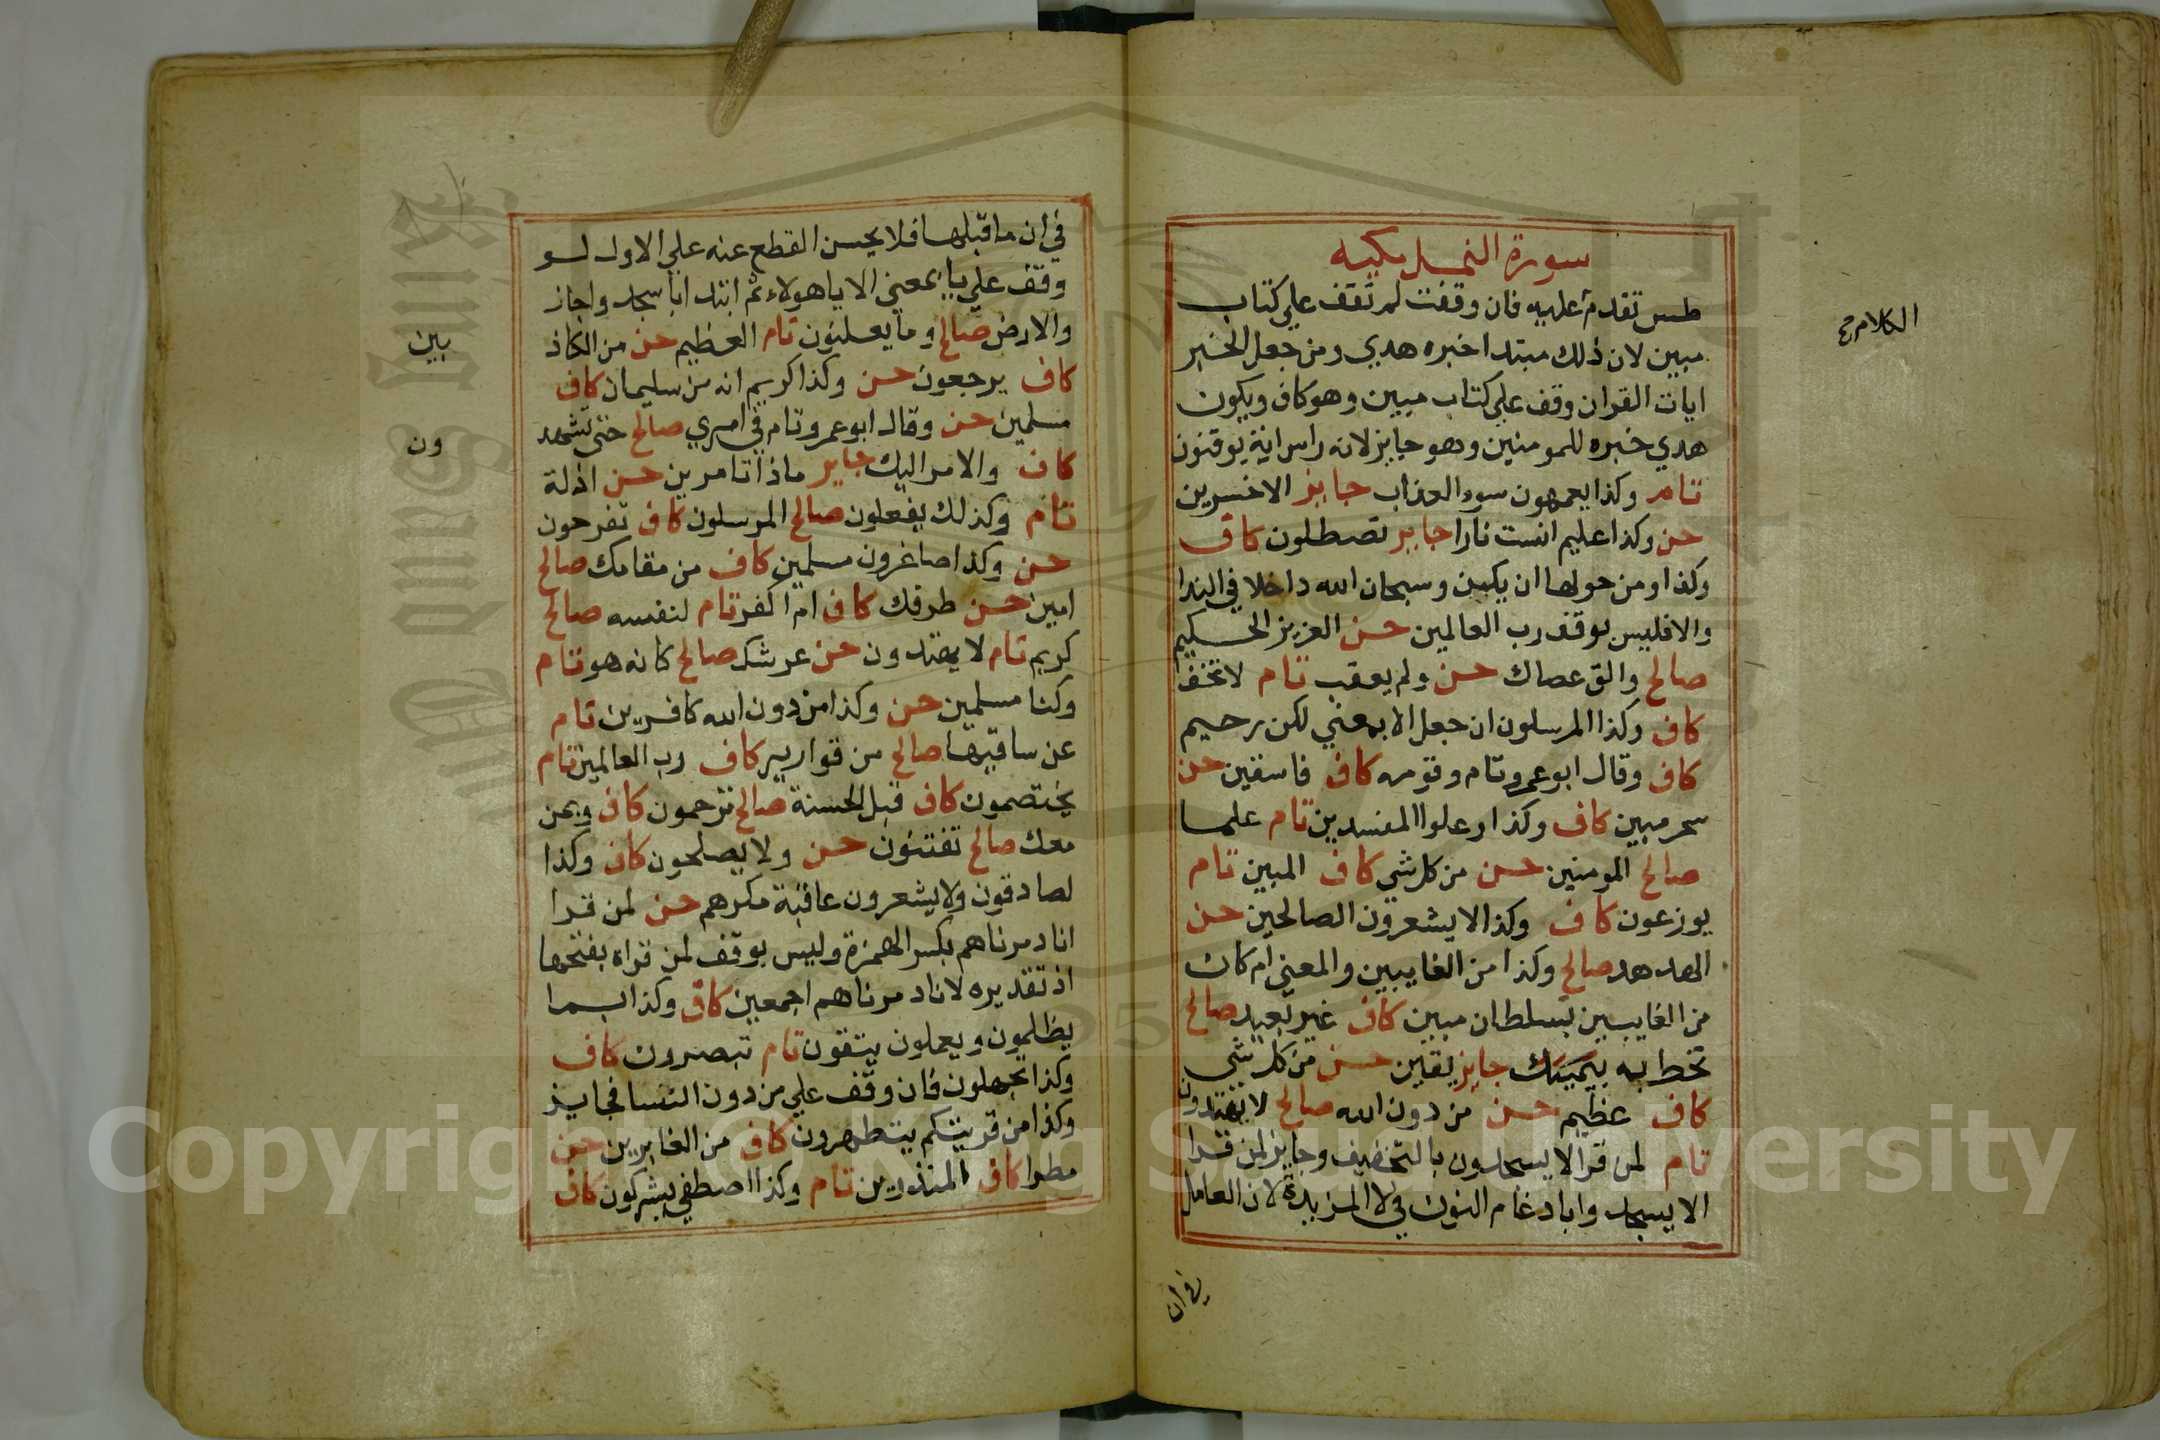 سورة النمل مكيه
طس تقدم عليه فان وقفت لم تقف على كتاب
الكلام صح
مبين لان ذلك مبتدا خبره هدي ومن جعل الخبر
ايات القران وقف على كتاب مبين وهو كاف ويكون
هدي خبره للمومنين وهو جايز لانه راس اية يوقنون
تام وكذا يعمهون سوء العذاب جايز الاخسرين
حسن وكذا عليم انست نارا جايز تصطلون كاف
وكذا ومن حولها ان يكن وسبحان الله داخلا في الندا
والا فليس بوقف رب العالمين حسن العزيز الحكيم
صالح والق عصاك حسن ولم يعقب تام لا تخف
كاف وكذا المرسلون ان جعل الا بمعني لكن رحيم
كاف وقال ابو عمرو تام وقومه كاف فاسقين حسن
سحر مبين كاف وكذا وعلوا المفسدين تام علما
صالح المومنين حسن من كل شي كاف المبين تام
يوزعون كاف وكذا لا يشعرون الصالحين حسن
الهدهد صالح وكذا من الغايبين والمعني ام كان
من الغايبين بسلطان مبين كاف غير بعيد صالح
تحط به جايز يقين حسن من كل شي
كاف عظيم حسن من دون الله صالح لا يهتدون
تام لمن قرا الا يسجدون بالتخفيف وجايز لمن قرا
الا يسجدوا بادغام النون في لا المزيدة لان العامل
في ان
في ان ما قبلها فلا يحسن القطع عنه علي الاول لو
وقف علي يا بمعني الا يا هولاء ثم ابتدا باسجدوا جاز
والارض صالح وما يعلنون تام العظيم حسن من الكاذ
بين
كاف يرجعون حسن وكذا كريم انه من سليمان كاف
مسلمين حسن وقال ابو عمرو تام في امري صالح حتى تشهد
ون
كاف والامر اليك جايز ماذا تامرين حسن اذلة
تام وكذلك يفعلون صالح المرسلون كاف تفرحون
حسن وكذا صاغرون مسلمين كاف من مقامك صالح
امين حسن طرفك كاف ام اكفر تام لنفسه صالح
كريم تام لا يهتدون حسن عرشك صالح كانه هو تام
وكنا مسلمين حسن وكذا من دون الله كافرين تام
عن ساقيها صالح من قوارير كاف رب العالمين تام
يختصمون كاف قبل الحسنة صالح ترحمون كاف وبمن
معك صالح تفتنون حسن ولا يصلحون كاف وكذا
لصادقون ولا يشعرون عاقبة مكرهم حسن لمن قرا
انا دمرناهم بكسر الهمزة وليس بوقف لمن قراه بفتحها
اذ تقديره لانا دمرناهم اجمعين كاف وكذا بما
ظلموا ويعملون يتقون تام تبصرون كاف
وكذا تجهلون فان وقف علي من دون النسا فجايز
وكذا من قريتكم يتطهرون كاف من الغابرين حسن
مطرا كاف المنذرين تام وكذا اصطفي يشركون كاف
Copyright © King Saud University